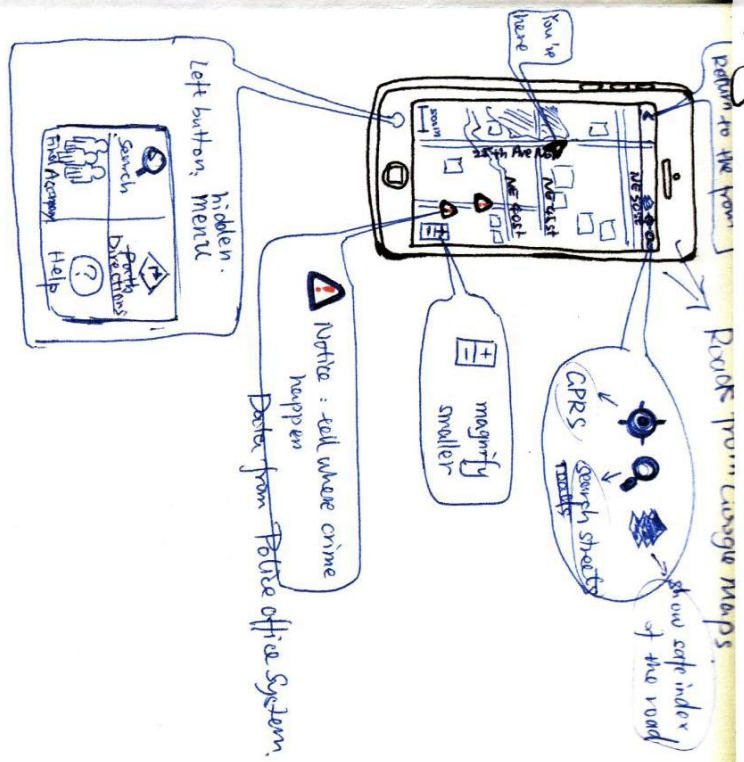 Return to the
Roads from Google Maps
NE 50st
NE 41st
NE 40st
25th Ave NE
500m
You're
here
GPRS
search streets
show safe index
of the road
+
-
magnify
smaller
Notice : tell where crime
happen
Data from Police office System.
Left button, hidden.
menu
Search
Directions
Find Accompany
Help
?